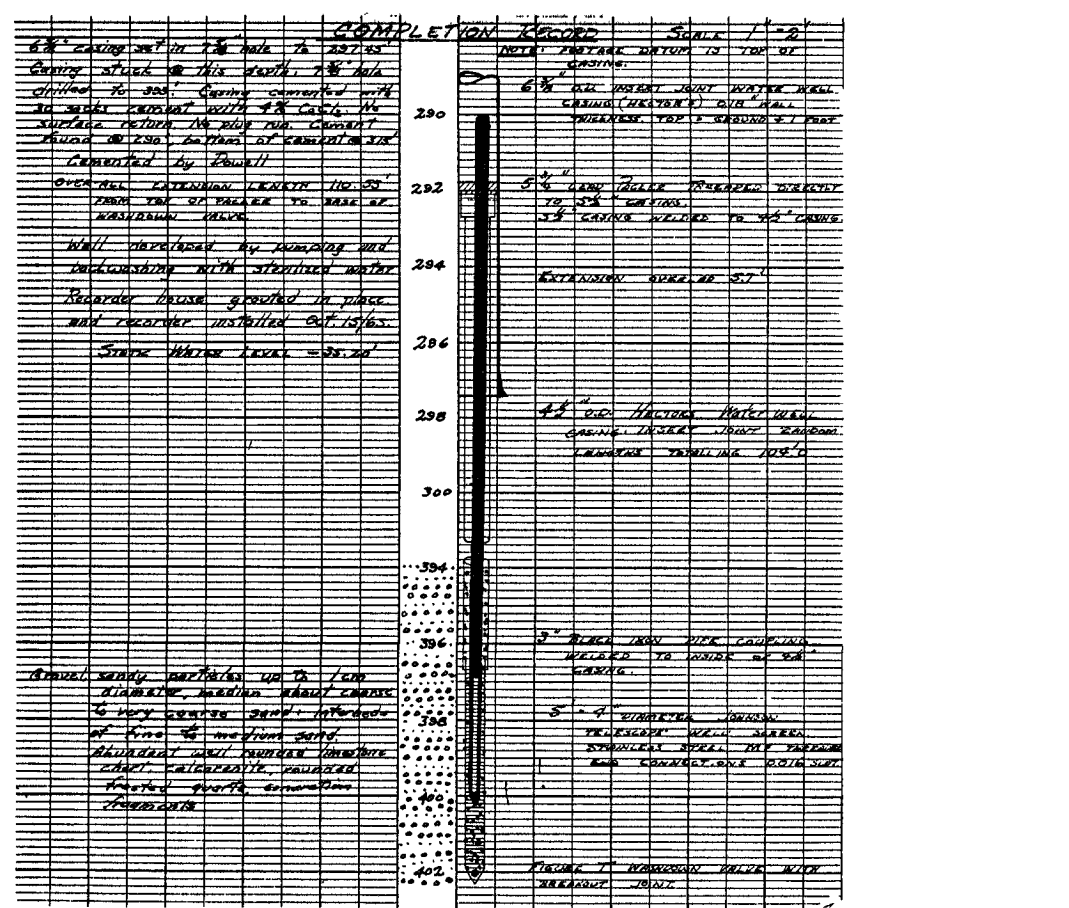 COMPLETION RECORD SCALE 1"=2'
6⅝" casing set in 7⅞" hole to 297.45'
Casing stuck @ this depth. 7⅞" hole
drilled to 395'. Casing cemented with
30 sacks cement with 4% CaCl₂. No
surface return. No plug run. Cement
found @ 290', bottom of cement @ 315'
Cemented by Dowell
OVERALL EXTENSION LENGTH 110.55'
FROM TOP OF PACKER TO BASE OF
WASHDOWN VALVE
Well developed by pumping and
backwashing with sterilized water
Recorder house grouted in place
and recorder installed Oct. 15/65.
STATIC WATER LEVEL -35.20'
Gravel, sandy, particles up to 1cm
diameter, median about coarse
to very coarse sand: interbeds
of fine to medium sand.
Abundant well rounded limestone
chert, calcarenite, rounded
frosted quartz, concretion
fragments
290
292
294
296
298
300
394
396
398
400
402
NOTE: FOOTAGE DATUM IS TOP OF
CASING.
6⅝" O.D. INSERT JOINT WATER WELL
CASING (HECTOR'S) 0.18" WALL
THICKNESS. TOP = GROUND +1 FOOT
LEAD PACKER THREADED DIRECTLY
TO 5½" CASING.
5½" CASING WELDED TO 4½" CASING.
EXTENSION OVERLAP 5.7'
4½" O.D. HECTORS WATER WELL
CASING. INSERT JOINT RANDOM
LENGTHS TOTALLING 104'.0
3" BLACK IRON PIPE COUPLING
WELDED TO INSIDE OF 4½"
CASING.
5'-4" DIAMETER JOHNSON
TELESCOPE WELL SCREEN
STAINLESS STEEL
END CONNECTIONS 0.016 SLOT
FIGURE T WASHDOWN VALVE WITH
BREAKOUT JOINT.